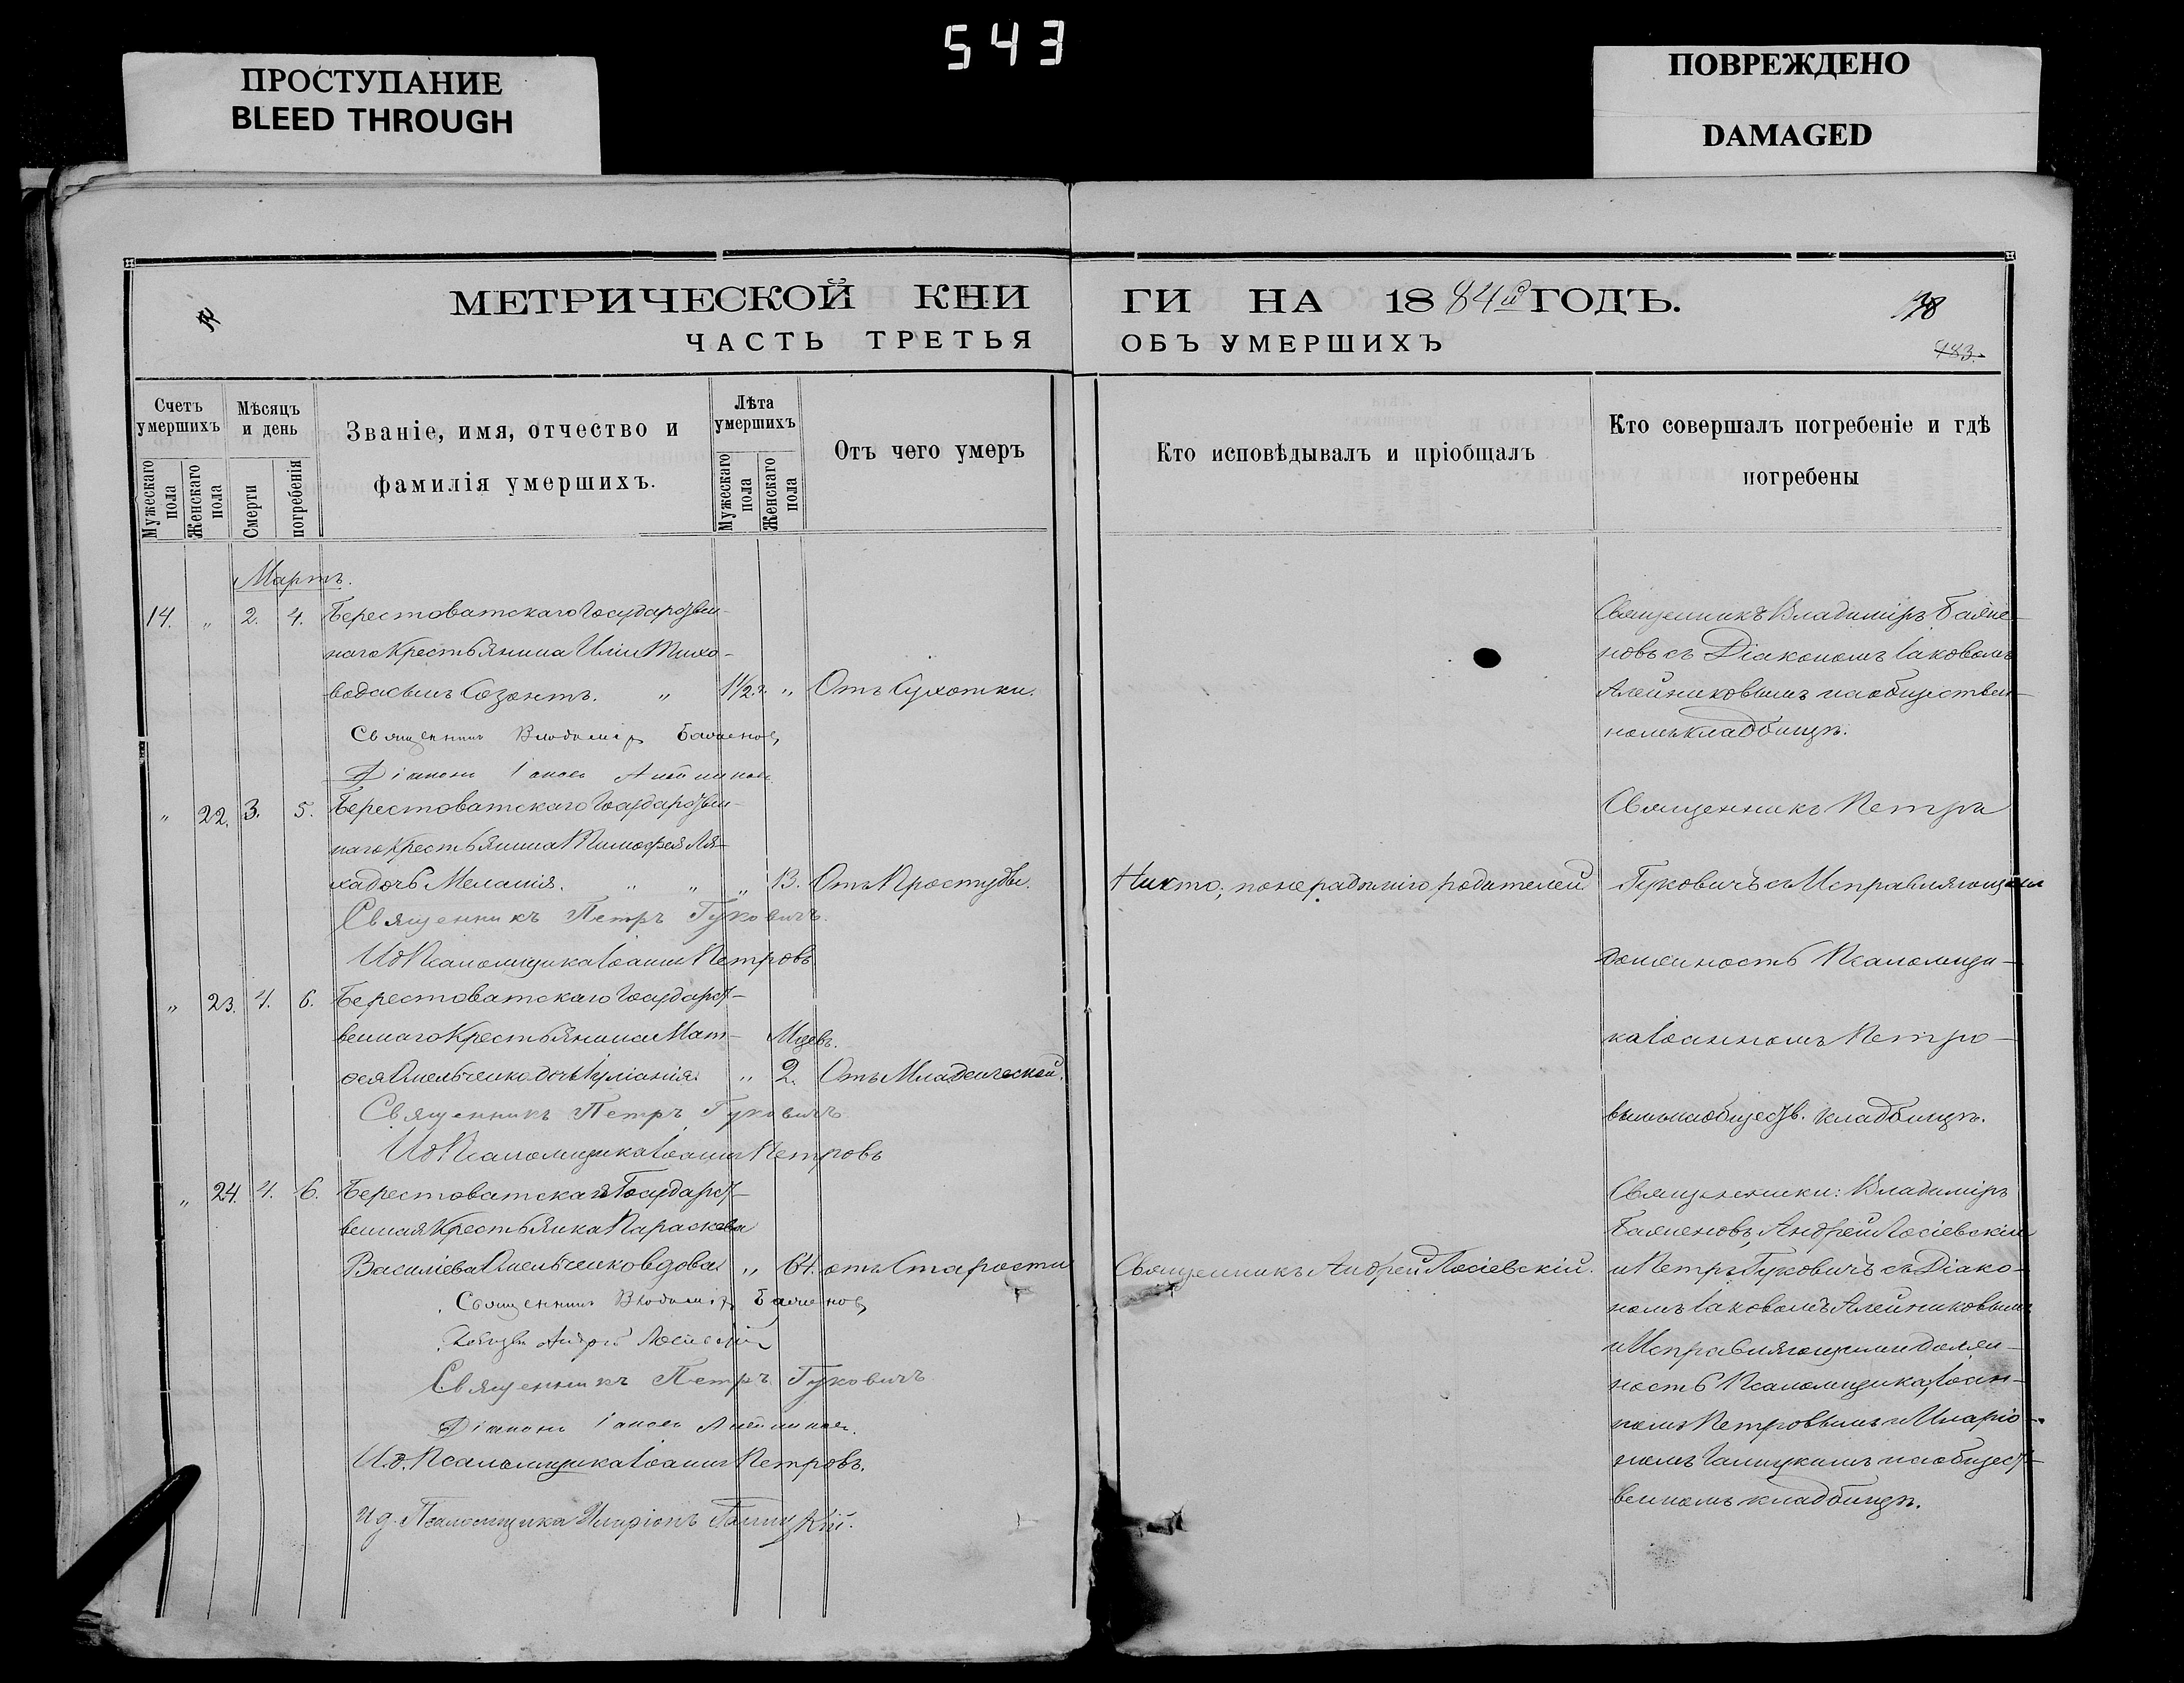 543
ПРОСТУПАНИЕ
BLEED THROUGH
ПОВРЕЖДЕНО
DAMAGED
МЕТРИЧЕСКОЙ КНИ
ЧАСТЬ ТРЕТЬЯ
ГИ НА 1884й ГОДЪ.
ОБЪ УМЕРШИХЪ
183.
Счетъ умершихъ
Мужескаго пола
Женскаго пола
Мѣсяцъ и день
Смерти
погребенія
Званіе, имя, отчество и
фамилія умершихъ.
Лѣта умершихъ
Мужескаго пола
Женскаго пола
Отъ чего умеръ
Кто исповѣдывалъ и пріобщалъ
Кто совершалъ погребеніе и гдѣ
погребены
Мартъ.
14. „ 2. 4. Берестоватскаго Государствен-
наго Крестьянина Иліи Тихо-
вода сынъ Созонтъ. „ 1 1/2 г. „ Отъ Сухотки.
Священникъ Владиміръ Баженовъ
Діаконъ Іаковъ Алейниковъ
Священникъ Владиміръ Баже-
новъ съ Діакономъ Іаковомъ
Алейниковымъ на обществен-
номъ кладбищѣ.
„ 22. 3. 5. Берестоватскаго Государствен-
наго Крестьянина Тимофея Ля-
ха дочь Меланія. „ „ „ 13. Отъ Простуды.
Священникъ Петръ Гуковичъ.
И д Псаломщика Іоаннъ Петровъ
Никто, по нерадѣнію родителей
Священникъ Петръ
Гуковичъ съ Исправляющимъ
должность Псаломщи-
ка Іоанномъ Петро-
вымъ на обществ. кладбищѣ.
„ 23. 4. 6. Берестоватскаго Государст-
веннаго Крестьянина Мат- Мцевъ.
ѳея Омельченко дочь Іуліанія. „ 2. Отъ Младенческой.
Священникъ Петръ Гуковичъ
И д Псаломщика Іоаннъ Петровъ
„ 24. 4. 6. Берестоватская Государст-
венная Крестьянка Параскева
Василіева Омельченкова вдова „ 64. отъ Старости
Священникъ Андрей Лосіевскій.
Священникъ Владиміръ Баженовъ
Андрей Лосіевскій
Священникъ Петръ Гуковичъ
Діаконъ Іаковъ Алейниковъ.
И. д. Псаломщика Іоаннъ Петровъ.
И д. Псаломщика Иларіонъ Галицкій.
Священники: Владиміръ
Баженовъ, Андрей Лосіевскій
и Петръ Гуковичъ съ Діако-
номъ Іаковомъ Алейниковымъ
и Исправляющими долж-
ность Псаломщика, Іоан-
номъ Петровымъ и Иларіо-
номъ Галицкимъ на общест-
венномъ кладбищѣ.